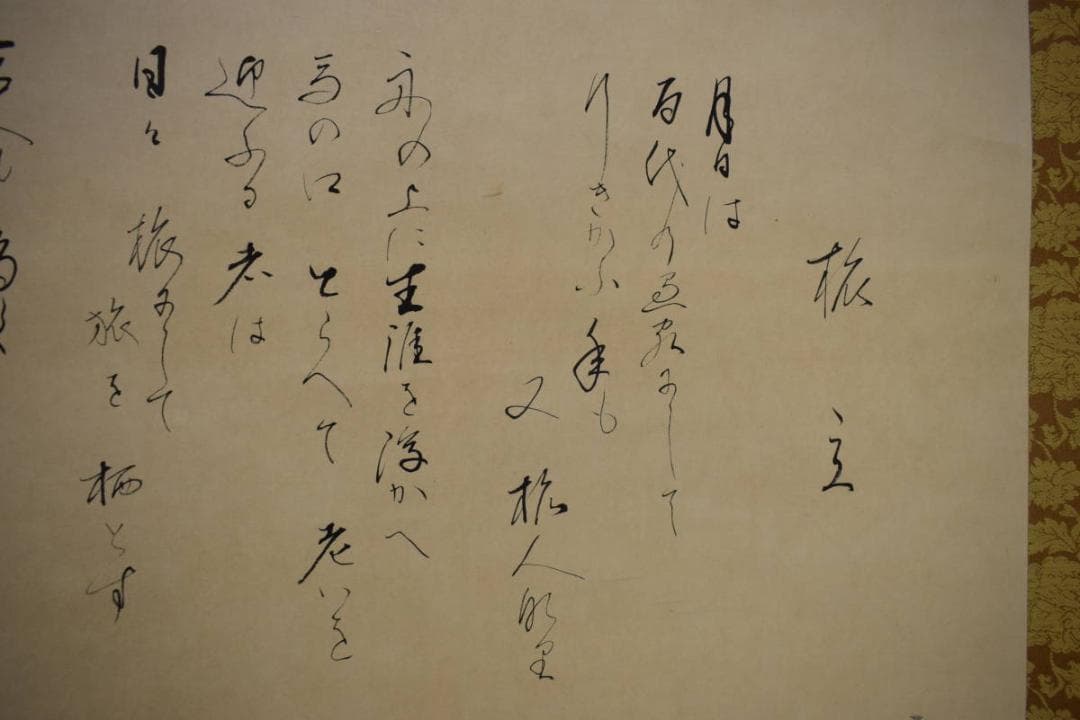 旅立
月日は
百代の過客にして
行きかふ年も
又旅人那里
舟の上に生涯を浮かへ
馬の口とらへて老いを
迎ふる者は
日々旅にして
旅を栖とす